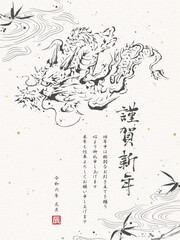 謹賀新年
昨年中は格別のお引き立てを賜り
心より御礼申し上げます
本年も何卒よろしくお願い申し上げます
令和六年 元旦
辰